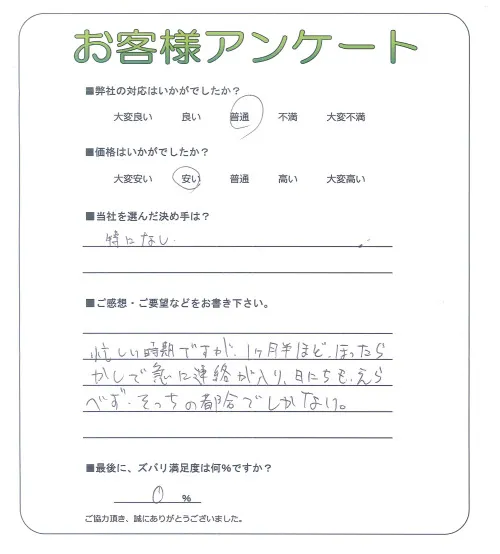 お客様アンケート
■弊社の対応はいかがでしたか?
大変良い 良い 普通 不満 大変不満
■価格はいかがでしたか?
大変安い 安い 普通 高い 大変高い
■当社を選んだ決め手は?
特になし.
■ご感想・ご要望などをお書き下さい。
忙しい時期ですが、1ヶ月半ほど、ほったら
かしで急に連絡が入り、日にちも、えら
べず、そっちの都合でしかない。
■最後に、ズバリ満足度は何%ですか?
0 %
ご協力頂き、誠にありがとうございました。